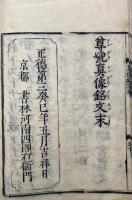 尊號真像銘文末
正德第三癸巳年五月吉祥日
京都 書林河南四郎右衛門